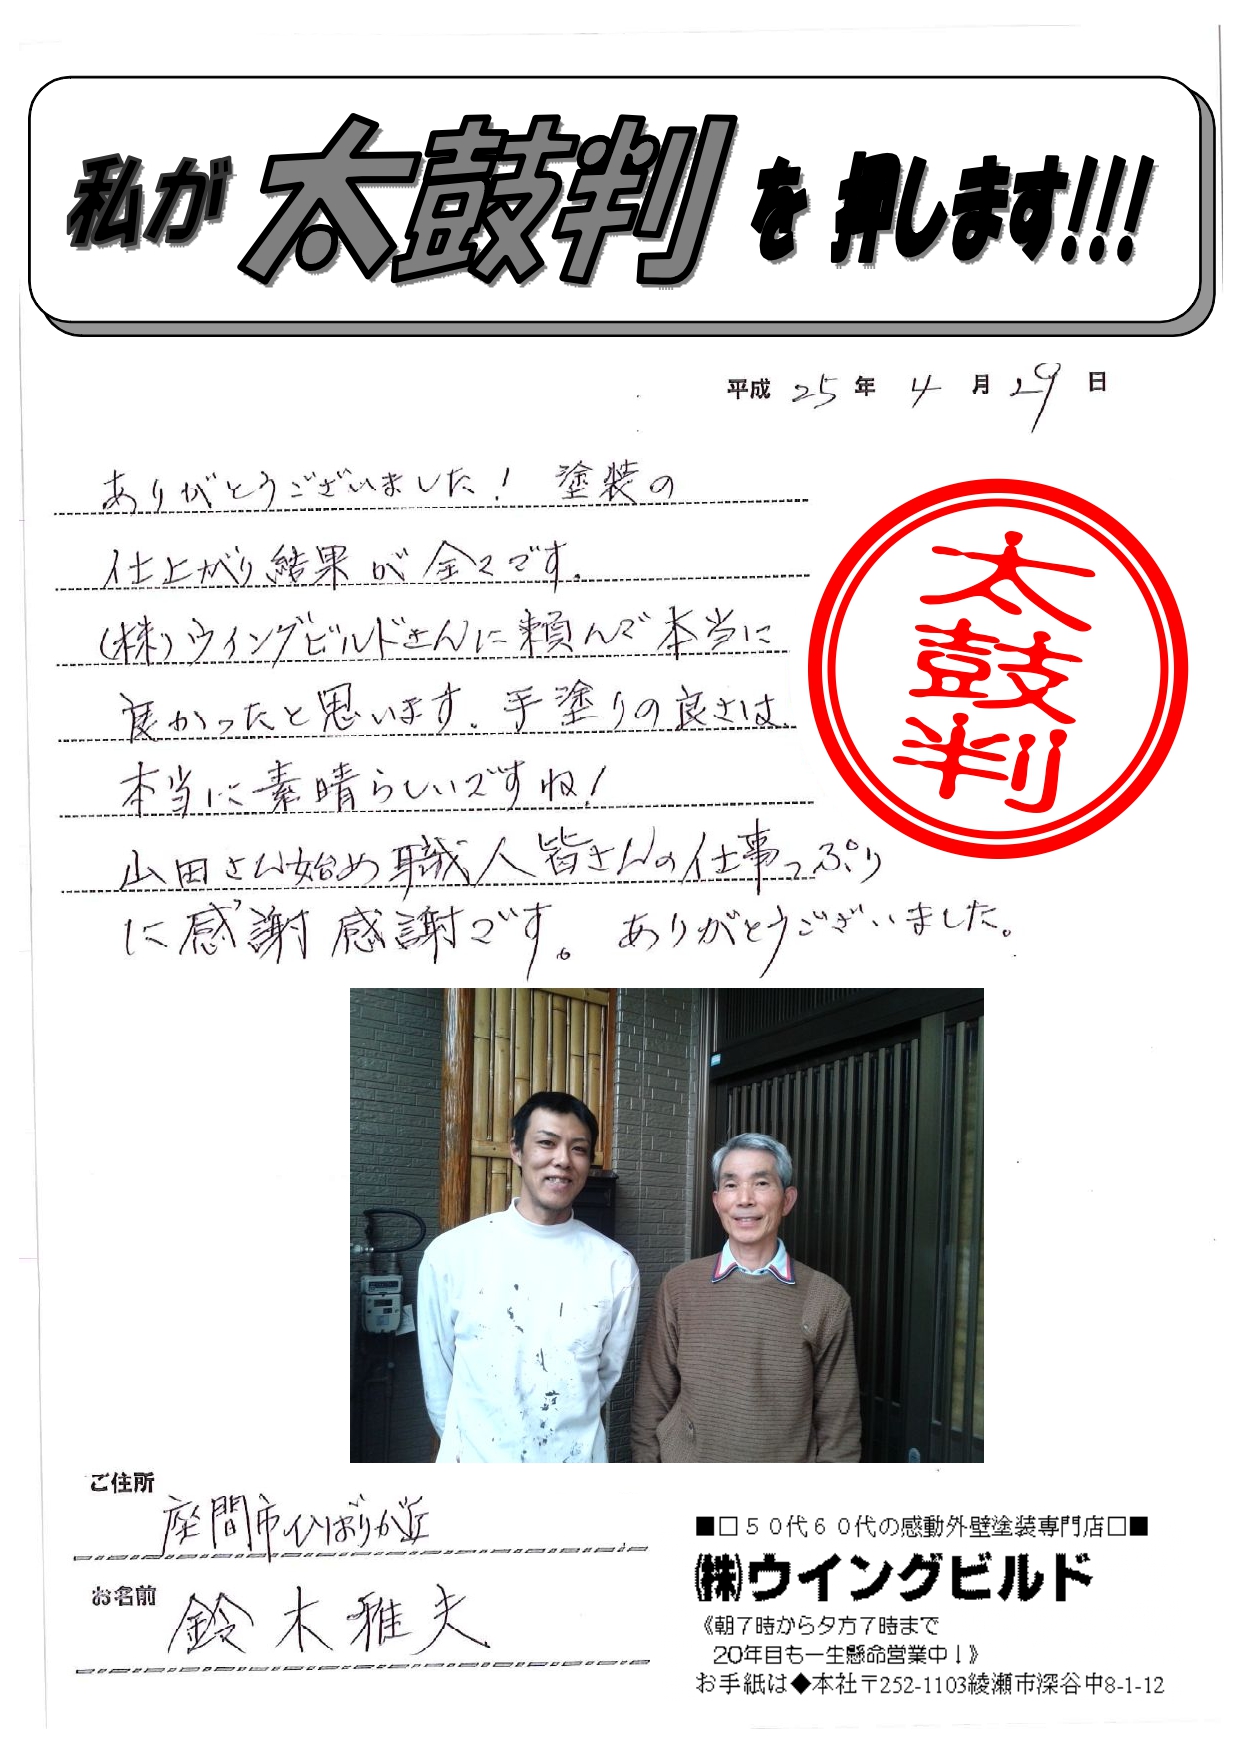 私が 太鼓判 を 押します!!!
平成 25 年 4 月 29 日
ありがとうございました！ 塗装の
仕上がり結果が全てです。
(株)ウイングビルドさんに頼んで本当に
良かったと思います。手塗りの良さは
本当に素晴らしいですね！
山田さん始め職人皆さんの仕事っぷり
に感謝感謝です。ありがとうございました。
太鼓判
ご住所
座間市ひばりが丘
お名前
鈴木雅夫
■□５０代６０代の感動外壁塗装専門店□■
㈱ウイングビルド
《朝７時から夕方７時まで
20年目も一生懸命営業中！》
お手紙は◆本社〒252-1103綾瀬市深谷中8-1-12